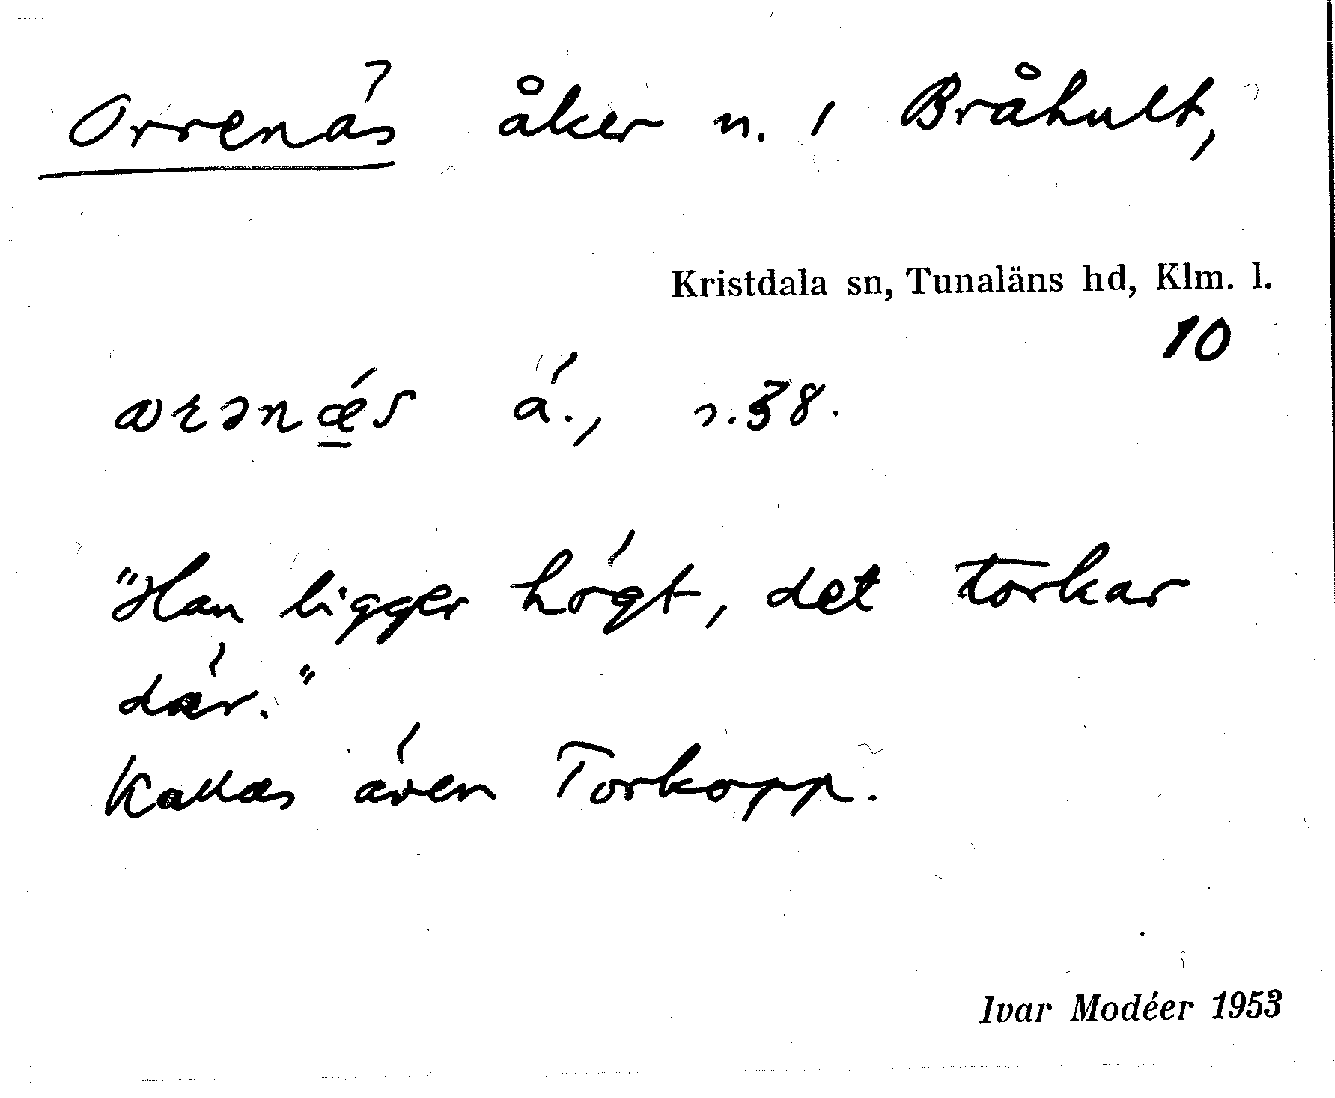 Orrenäs åker n. i Bråhult,
Kristdala sn, Tunaläns hd, Klm. l.
10
ä., s. 38.
"Han ligger högt, det torkar
där."
Kallas även Torkopp.
Ivar Modéer 1953